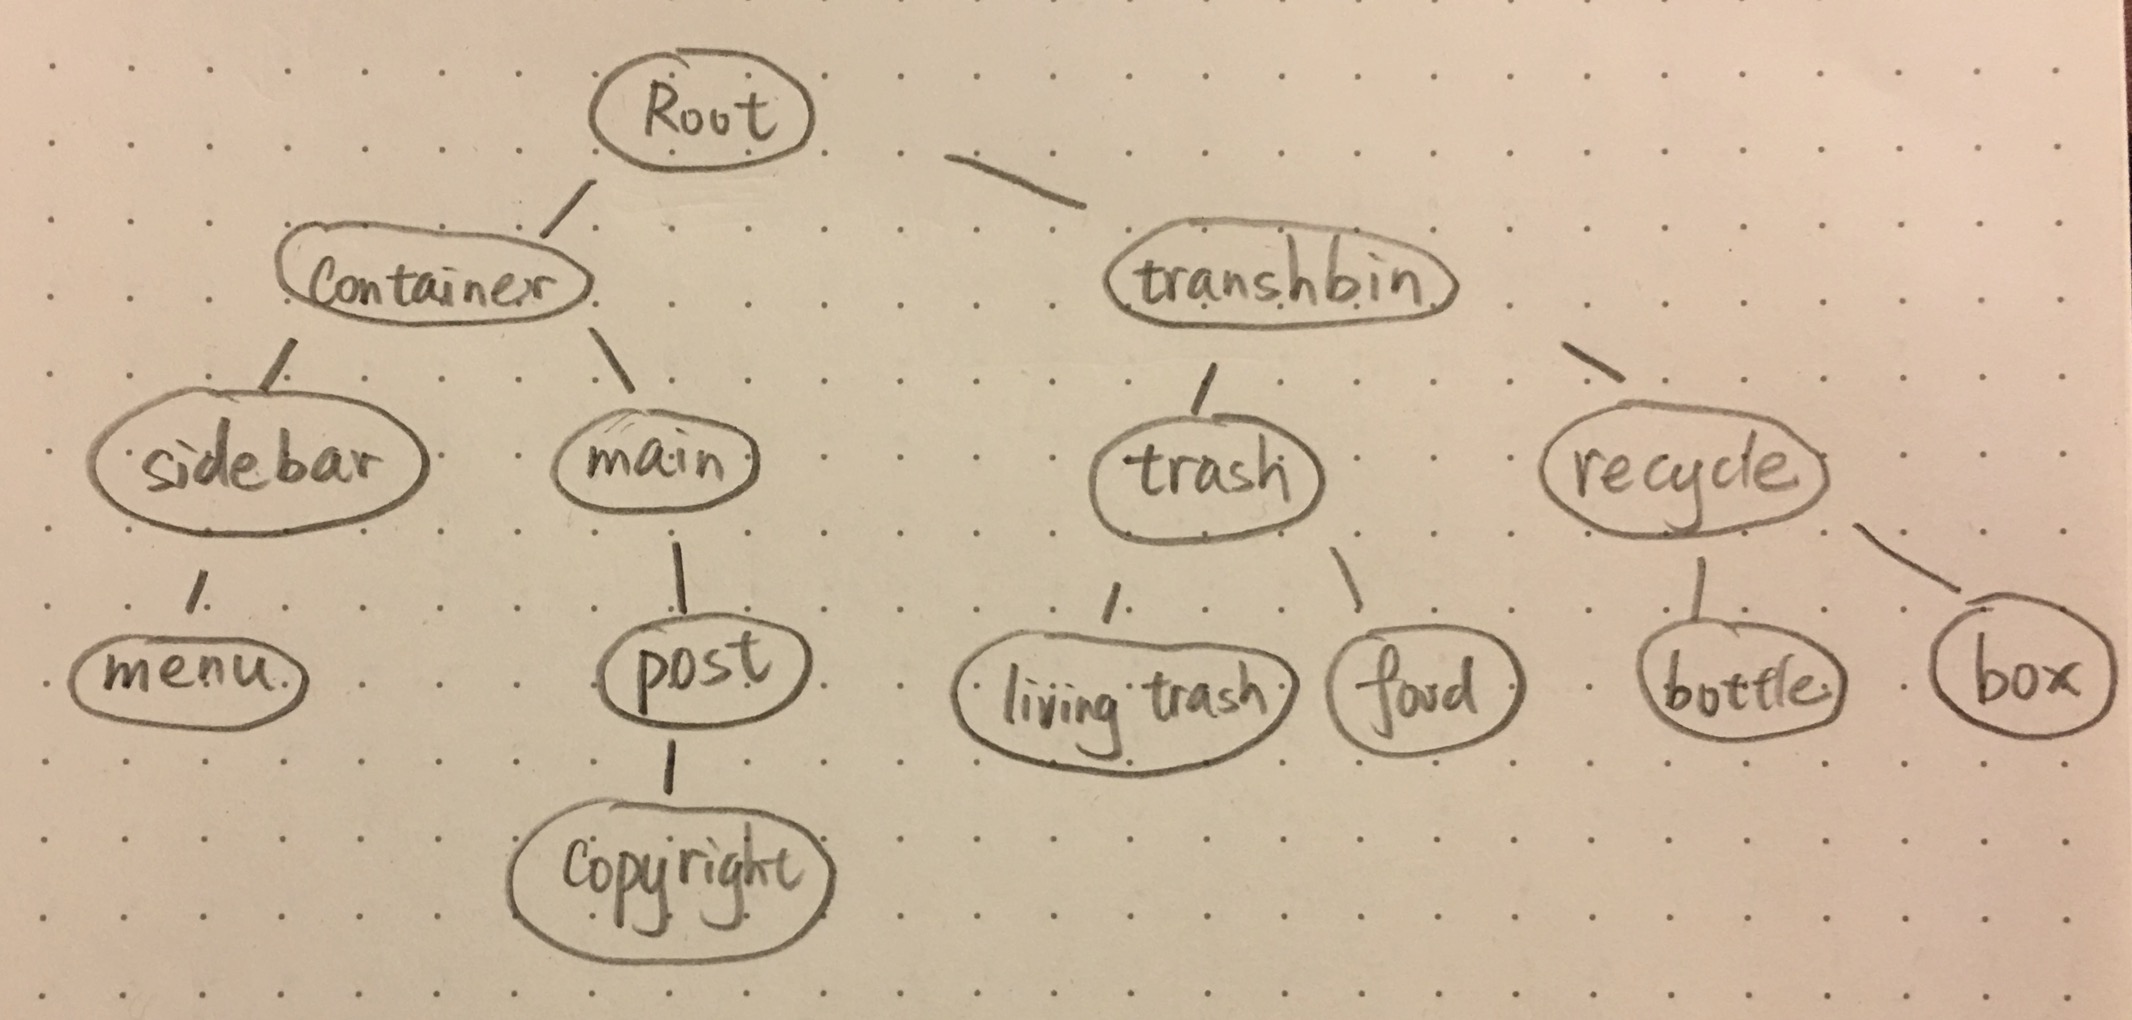 Root
Container
transhbin
sidebar
main
trash
recycle
menu
post
living trash
food
bottle
box
Copyright